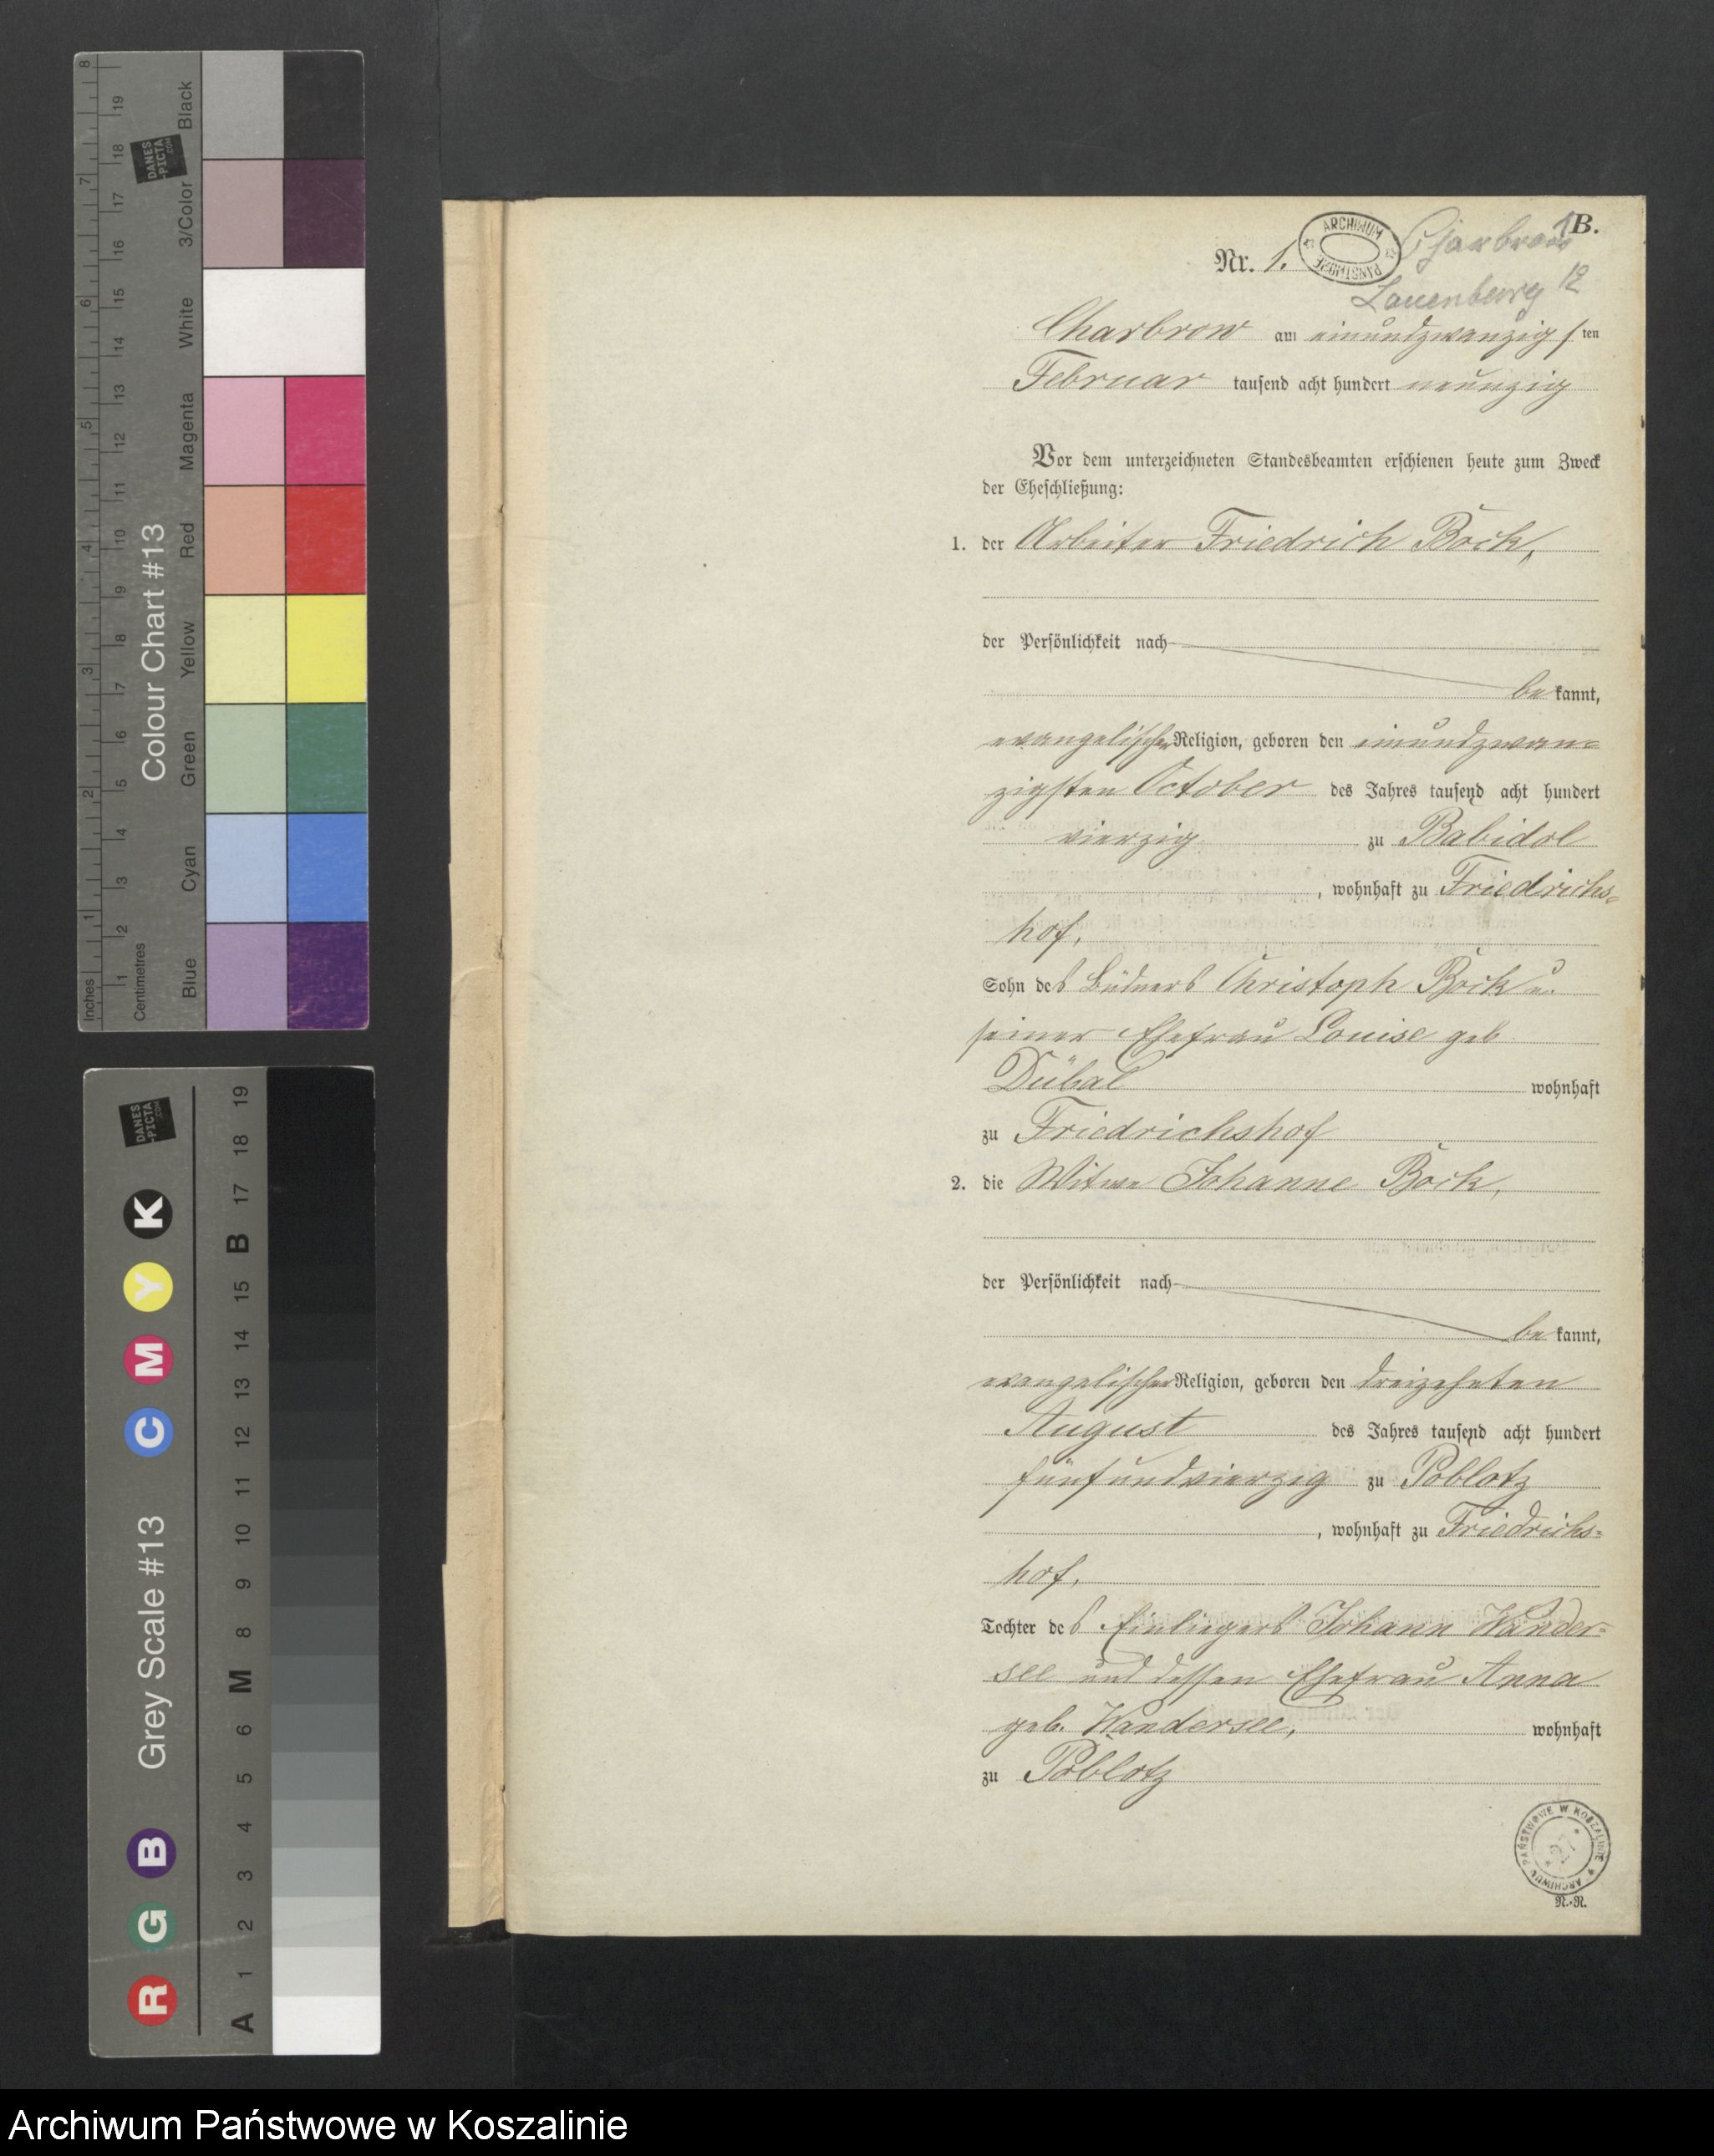 Inches
Centimetres
1 2 3 4 5 6 7 8
1 2 3 4 5 6 7 8 9 10 11 12 13 14 15 16 17 18 19
Colour Chart #13
Blue
Cyan
Green
Yellow
Red
Magenta
White
3/Color
Black
DANES
-PICTA
.COM
DANES
-PICTA
.COM
Grey Scale #13
R G B C M Y K
A 1 2 3 4 5 6 M 8 9 10 11 12 13 14 15 B 17 18 19
B.
1
Nr. 1.
ARCHIWUM PAŃSTWOWE
Charbrow
Lauenburg 12
Charbrow am einundzwanzigsten
Februar tausend acht hundert neunzig
Vor dem unterzeichneten Standesbeamten erschienen heute zum Zweck
der Eheschließung:
1. der Arbeiter Friedrich Bock,
der Persönlichkeit nach
bekannt,
evangelischer Religion, geboren den einundzwan=
zigsten October des Jahres tausend acht hundert
vierzig zu Babidol
, wohnhaft zu Friedrichs=
hof,
Sohn des Büdners Christoph Bock u.
seiner Ehefrau Louise geb
Dübal wohnhaft
zu Friedrichshof
2. die Witwe Johanne Bock,
der Persönlichkeit nach
bekannt,
evangelischer Religion, geboren den dreizehnten
August des Jahres tausend acht hundert
fünfundvierzig zu Poblotz
, wohnhaft zu Friedrichs=
hof,
Tochter des Einliegers Johann Wander=
see und dessen Ehefrau Anna
geb. Wandersee, wohnhaft
zu Poblotz
ARCHIWUM PAŃSTWOWE W KOSZALINIE
27
N.-N.
Archiwum Państwowe w Koszalinie